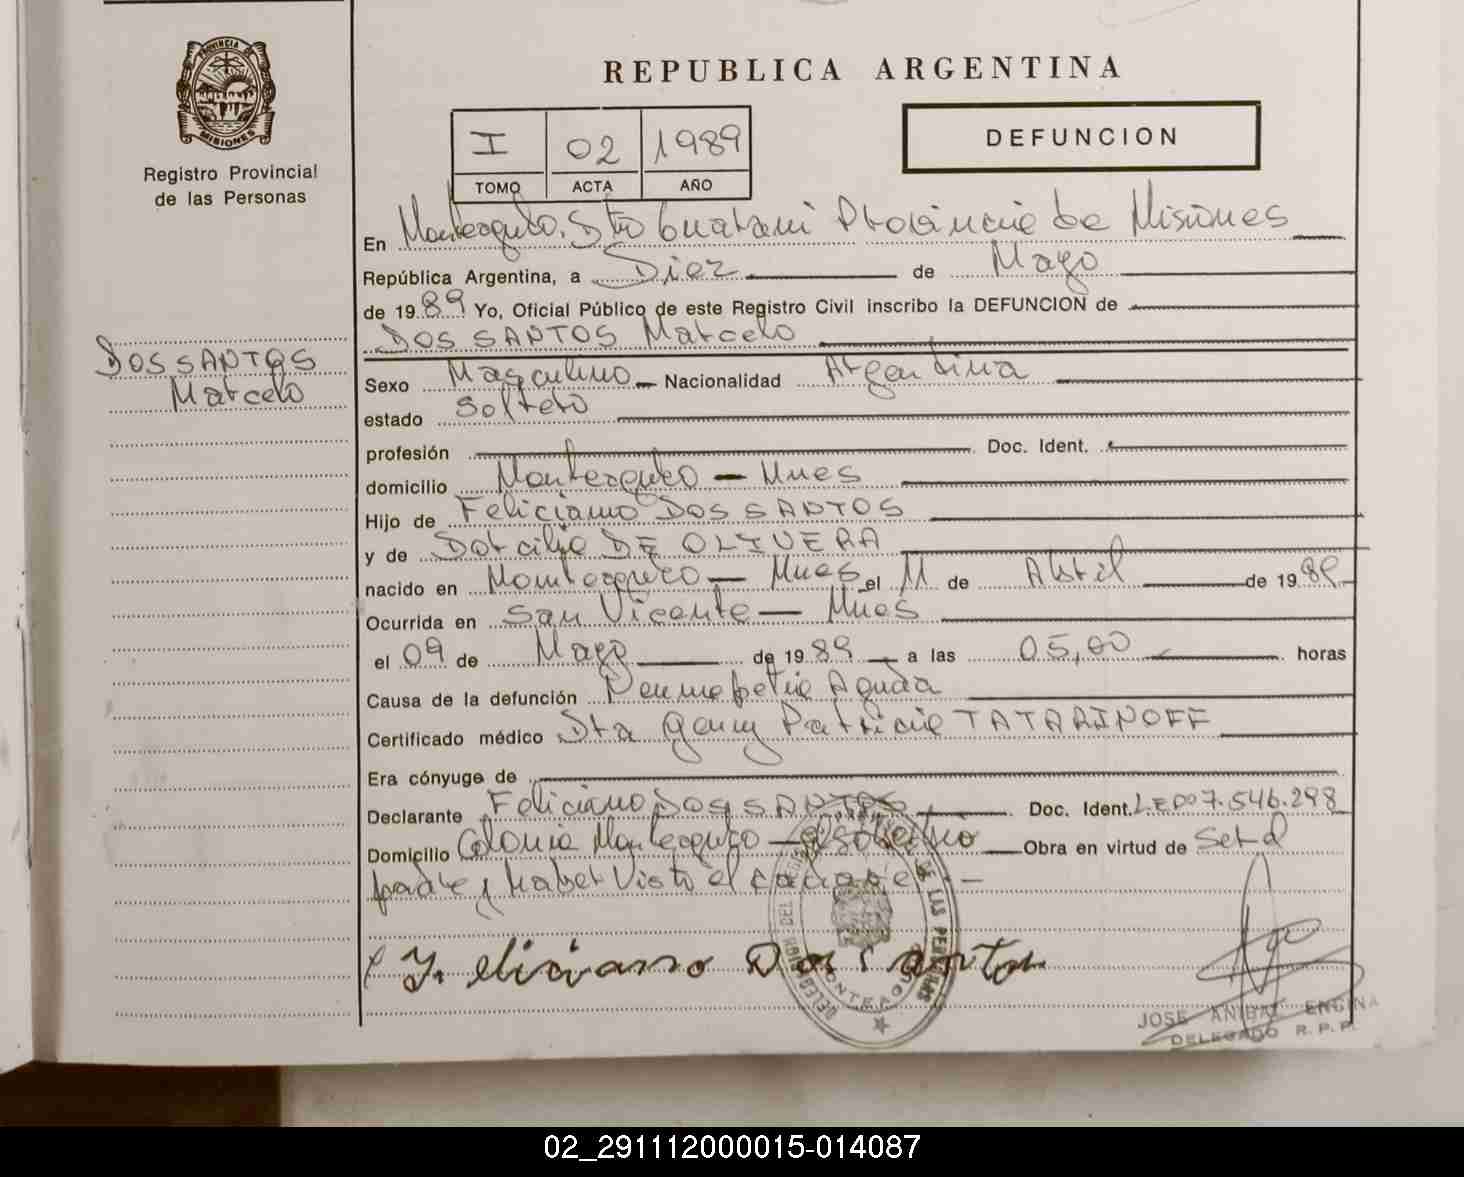 PROVINCIA DE
MISIONES
Registro Provincial
de las Personas
DOS SANTOS
Marcelo
REPUBLICA ARGENTINA
I 02 1989
TOMO ACTA AÑO
DEFUNCION
En Monteagudo, Dto Guarani Provincia de Misiones
República Argentina, a Diez de Mayo
de 1989 Yo, Oficial Público de este Registro Civil inscribo la DEFUNCION de
DOS SANTOS Marcelo
Sexo Masculino Nacionalidad Argentina
estado Soltero
profesión Doc. Ident.
domicilio Monteagudo - Mnes
Hijo de Feliciano DOS SANTOS
y de Dorcilia DE OLIVERA
nacido en Monteagudo - Mnes el 11 de Abril de 19
Ocurrida en San Vicente - Mnes
el 09 de Mayo de 1989 a las 05,00 horas
Causa de la defunción Aguda
Certificado médico Dra Geny Patricia TATARINOFF
Era cónyuge de
Declarante Feliciano DOS SANTOS Doc. Ident. L.E. Nº 7.546.298
Domicilio Colonia Monteagudo - Obra en virtud de Ser el
padre y Haber Visto el cadaver -
Feliciano Dos Santos
DE LAS PERSONAS
MONTEAGUDO
JOSE ANIBAL ENCINA
DELEGADO R. P. P.
02_291112000015-014087